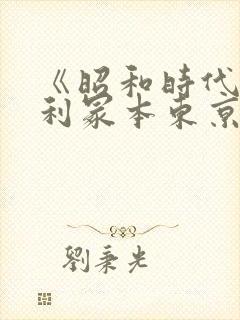 《昭和時代
利冢本東京
劉秉光